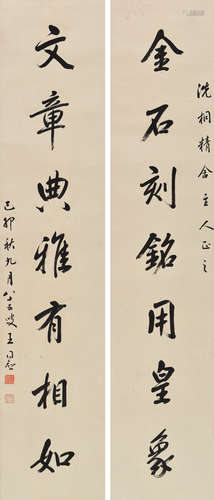 洗桐精舍主人正之
金石刻銘用皇象
文章典雅有相如
己卯秋九月八十五叟王同愈